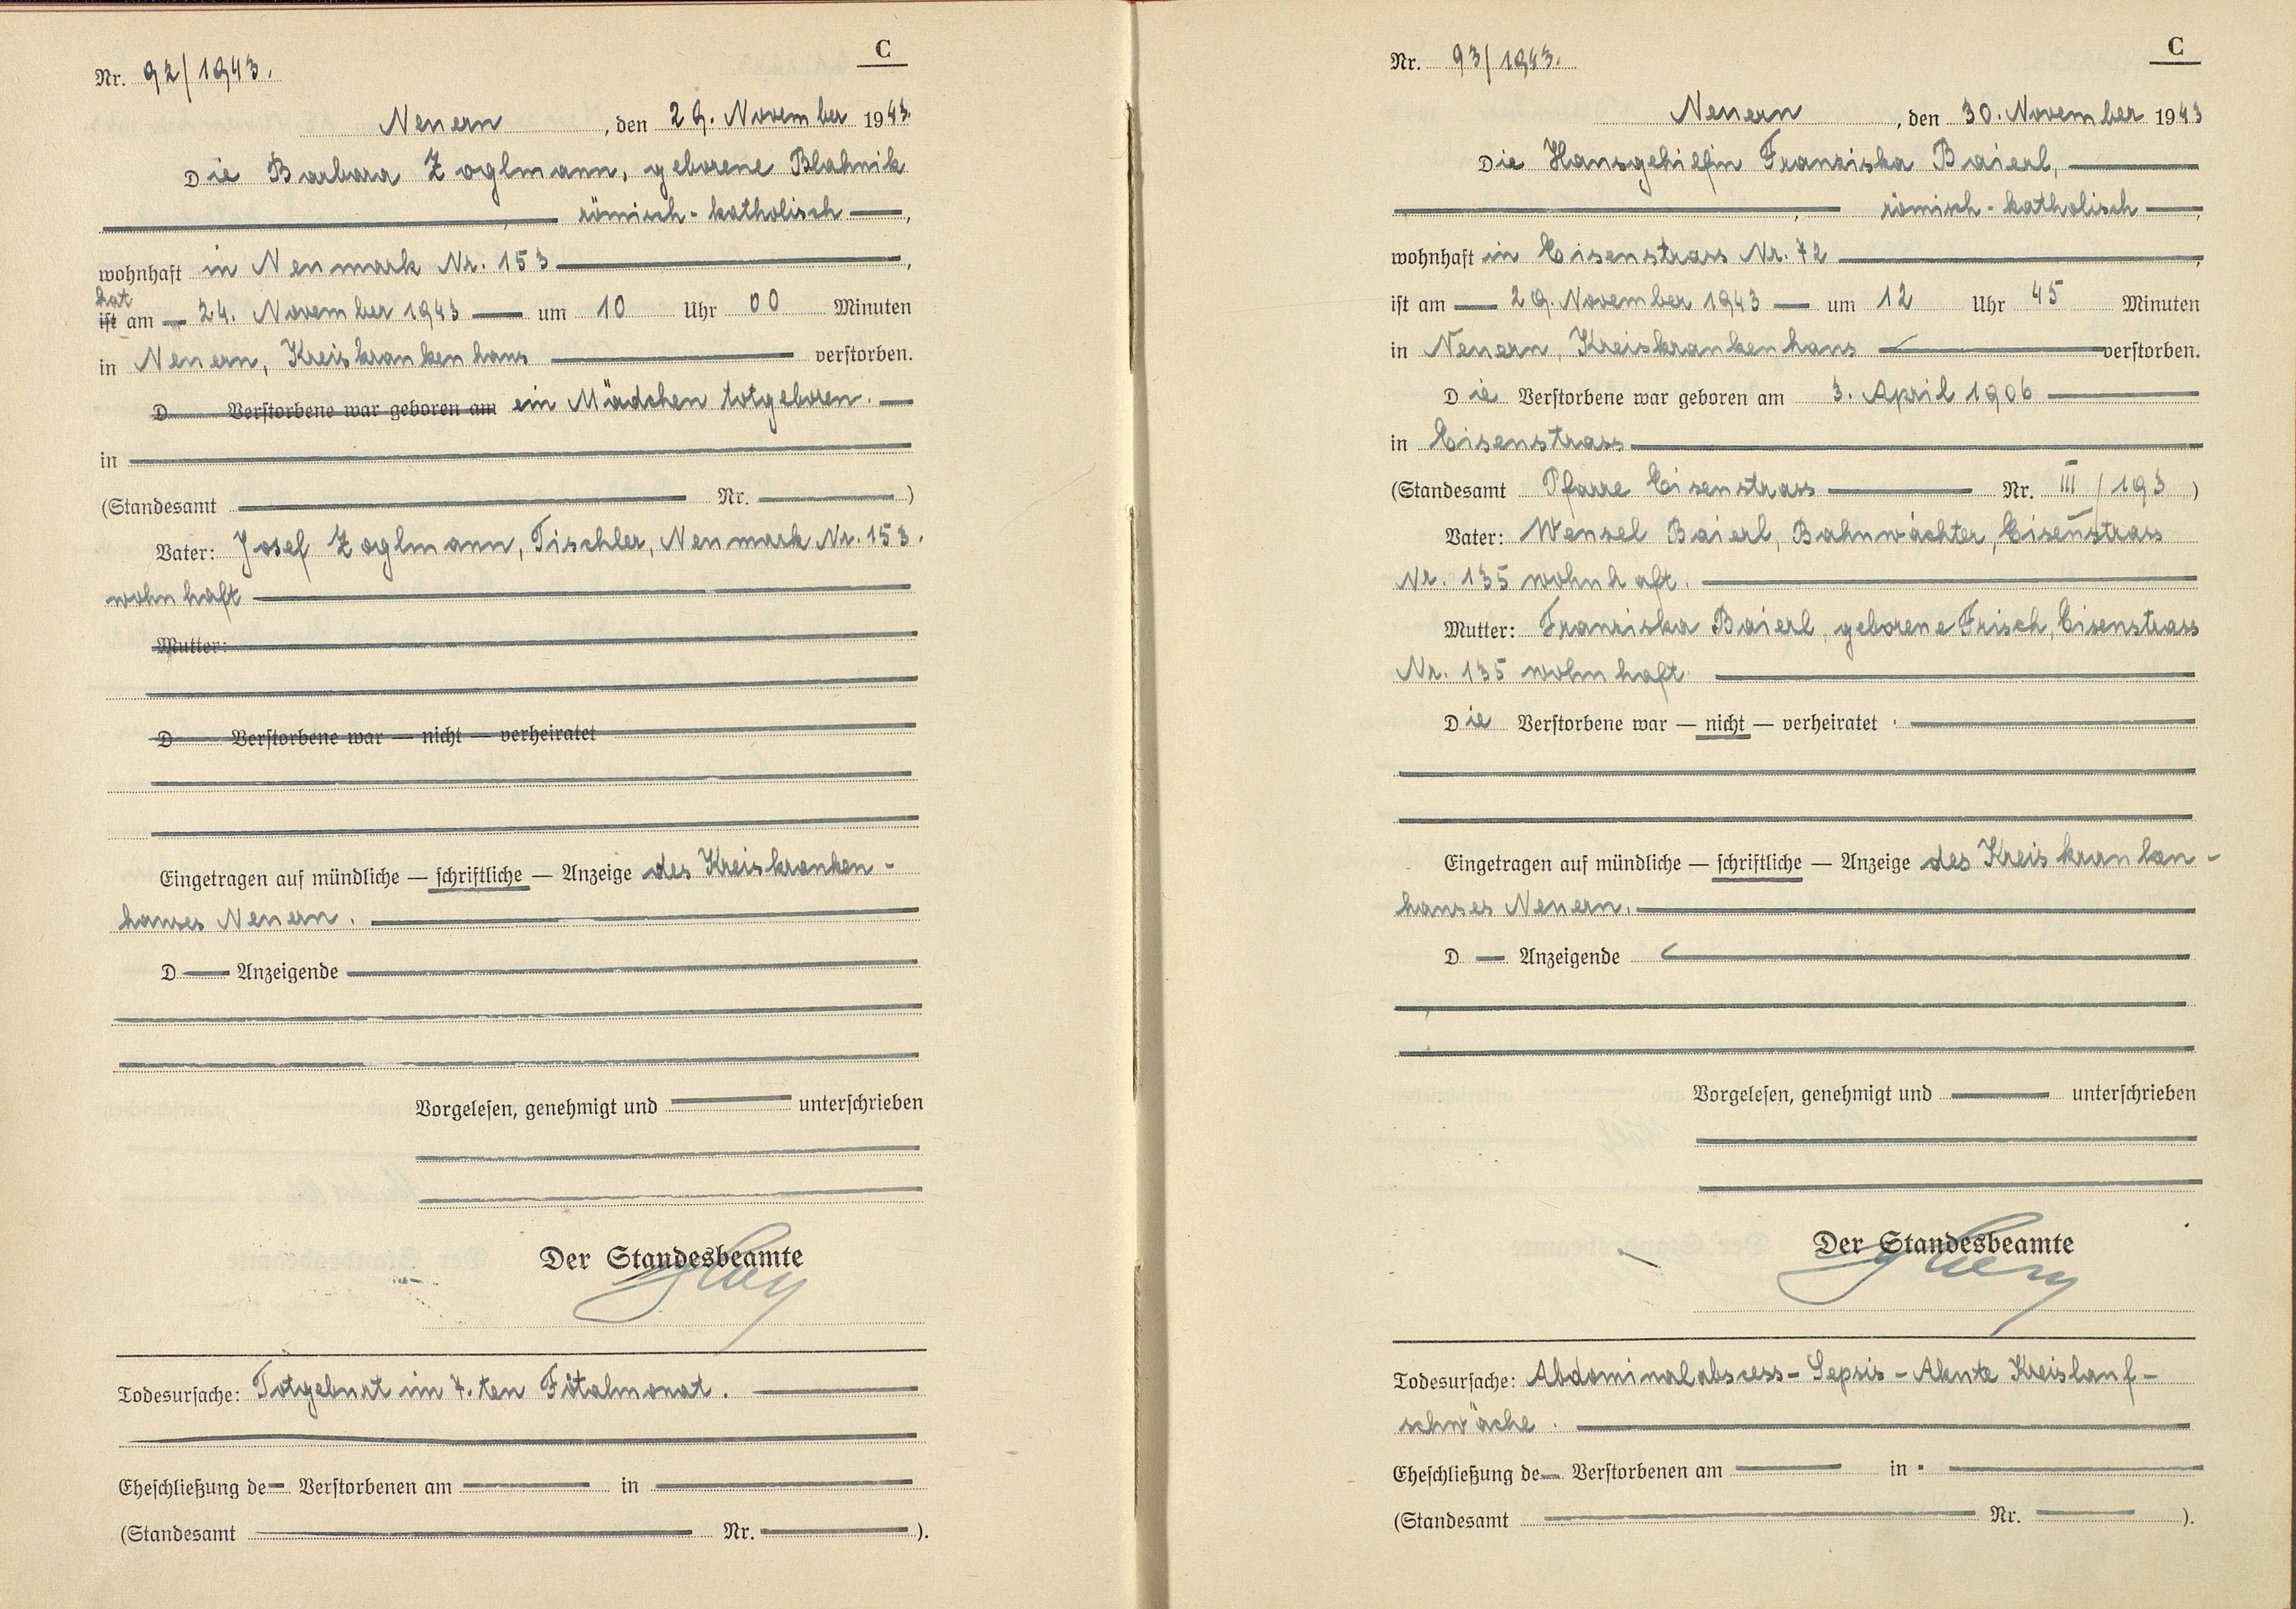 C
Nr. 92/1943.
Neuern, den 29. November 1943.
Die Barbara Zoglmann, geborene Blahnik
römisch-katholisch,
wohnhaft in Neumark Nr. 153,
hat
ist am 24. November 1943 um 10 Uhr 00 Minuten
in Neuern, Kreiskrankenhaus verstorben.
D Verstorbene war geboren am ein Mädchen totgeboren.
in
(Standesamt Nr. )
Vater: Josef Zoglmann, Tischler, Neumark Nr. 153.
wohnhaft
Mutter:
D Verstorbene war — nicht — verheiratet
Eingetragen auf mündliche — schriftliche — Anzeige des Kreiskranken-
hauses Neuern.
D Anzeigende
Vorgelesen, genehmigt und unterschrieben
Der Standesbeamte
Todesursache: Totgeburt im 7.ten Fötalmonat.
Eheschließung de Verstorbenen am in
(Standesamt Nr. ).
C
Nr. 93/1943.
Neuern, den 30. November 1943
Die Hausgehilfin Franziska Baierl,
, römisch-katholisch,
wohnhaft in Eisenstrass Nr. 72,
ist am 29. November 1943 um 12 Uhr 45 Minuten
in Neuern, Kreiskrankenhaus verstorben.
Die Verstorbene war geboren am 3. April 1906
in Eisenstrass
(Standesamt Pfarre Eisenstrass Nr. III/193 )
Vater: Wenzel Baierl, Bahnwächter, Eisenstrass
Nr. 135 wohnhaft.
Mutter: Franziska Baierl, geborene Frisch, Eisenstrass
Nr. 135 wohnhaft
Die Verstorbene war — nicht — verheiratet.
Eingetragen auf mündliche — schriftliche — Anzeige des Kreiskranken-
hauses Neuern.
D Anzeigende
Vorgelesen, genehmigt und unterschrieben
Der Standesbeamte
Todesursache: Abdominalabscess - Sepsis - Akute Kreislauf-
schwäche.
Eheschließung de Verstorbenen am in
(Standesamt Nr. ).